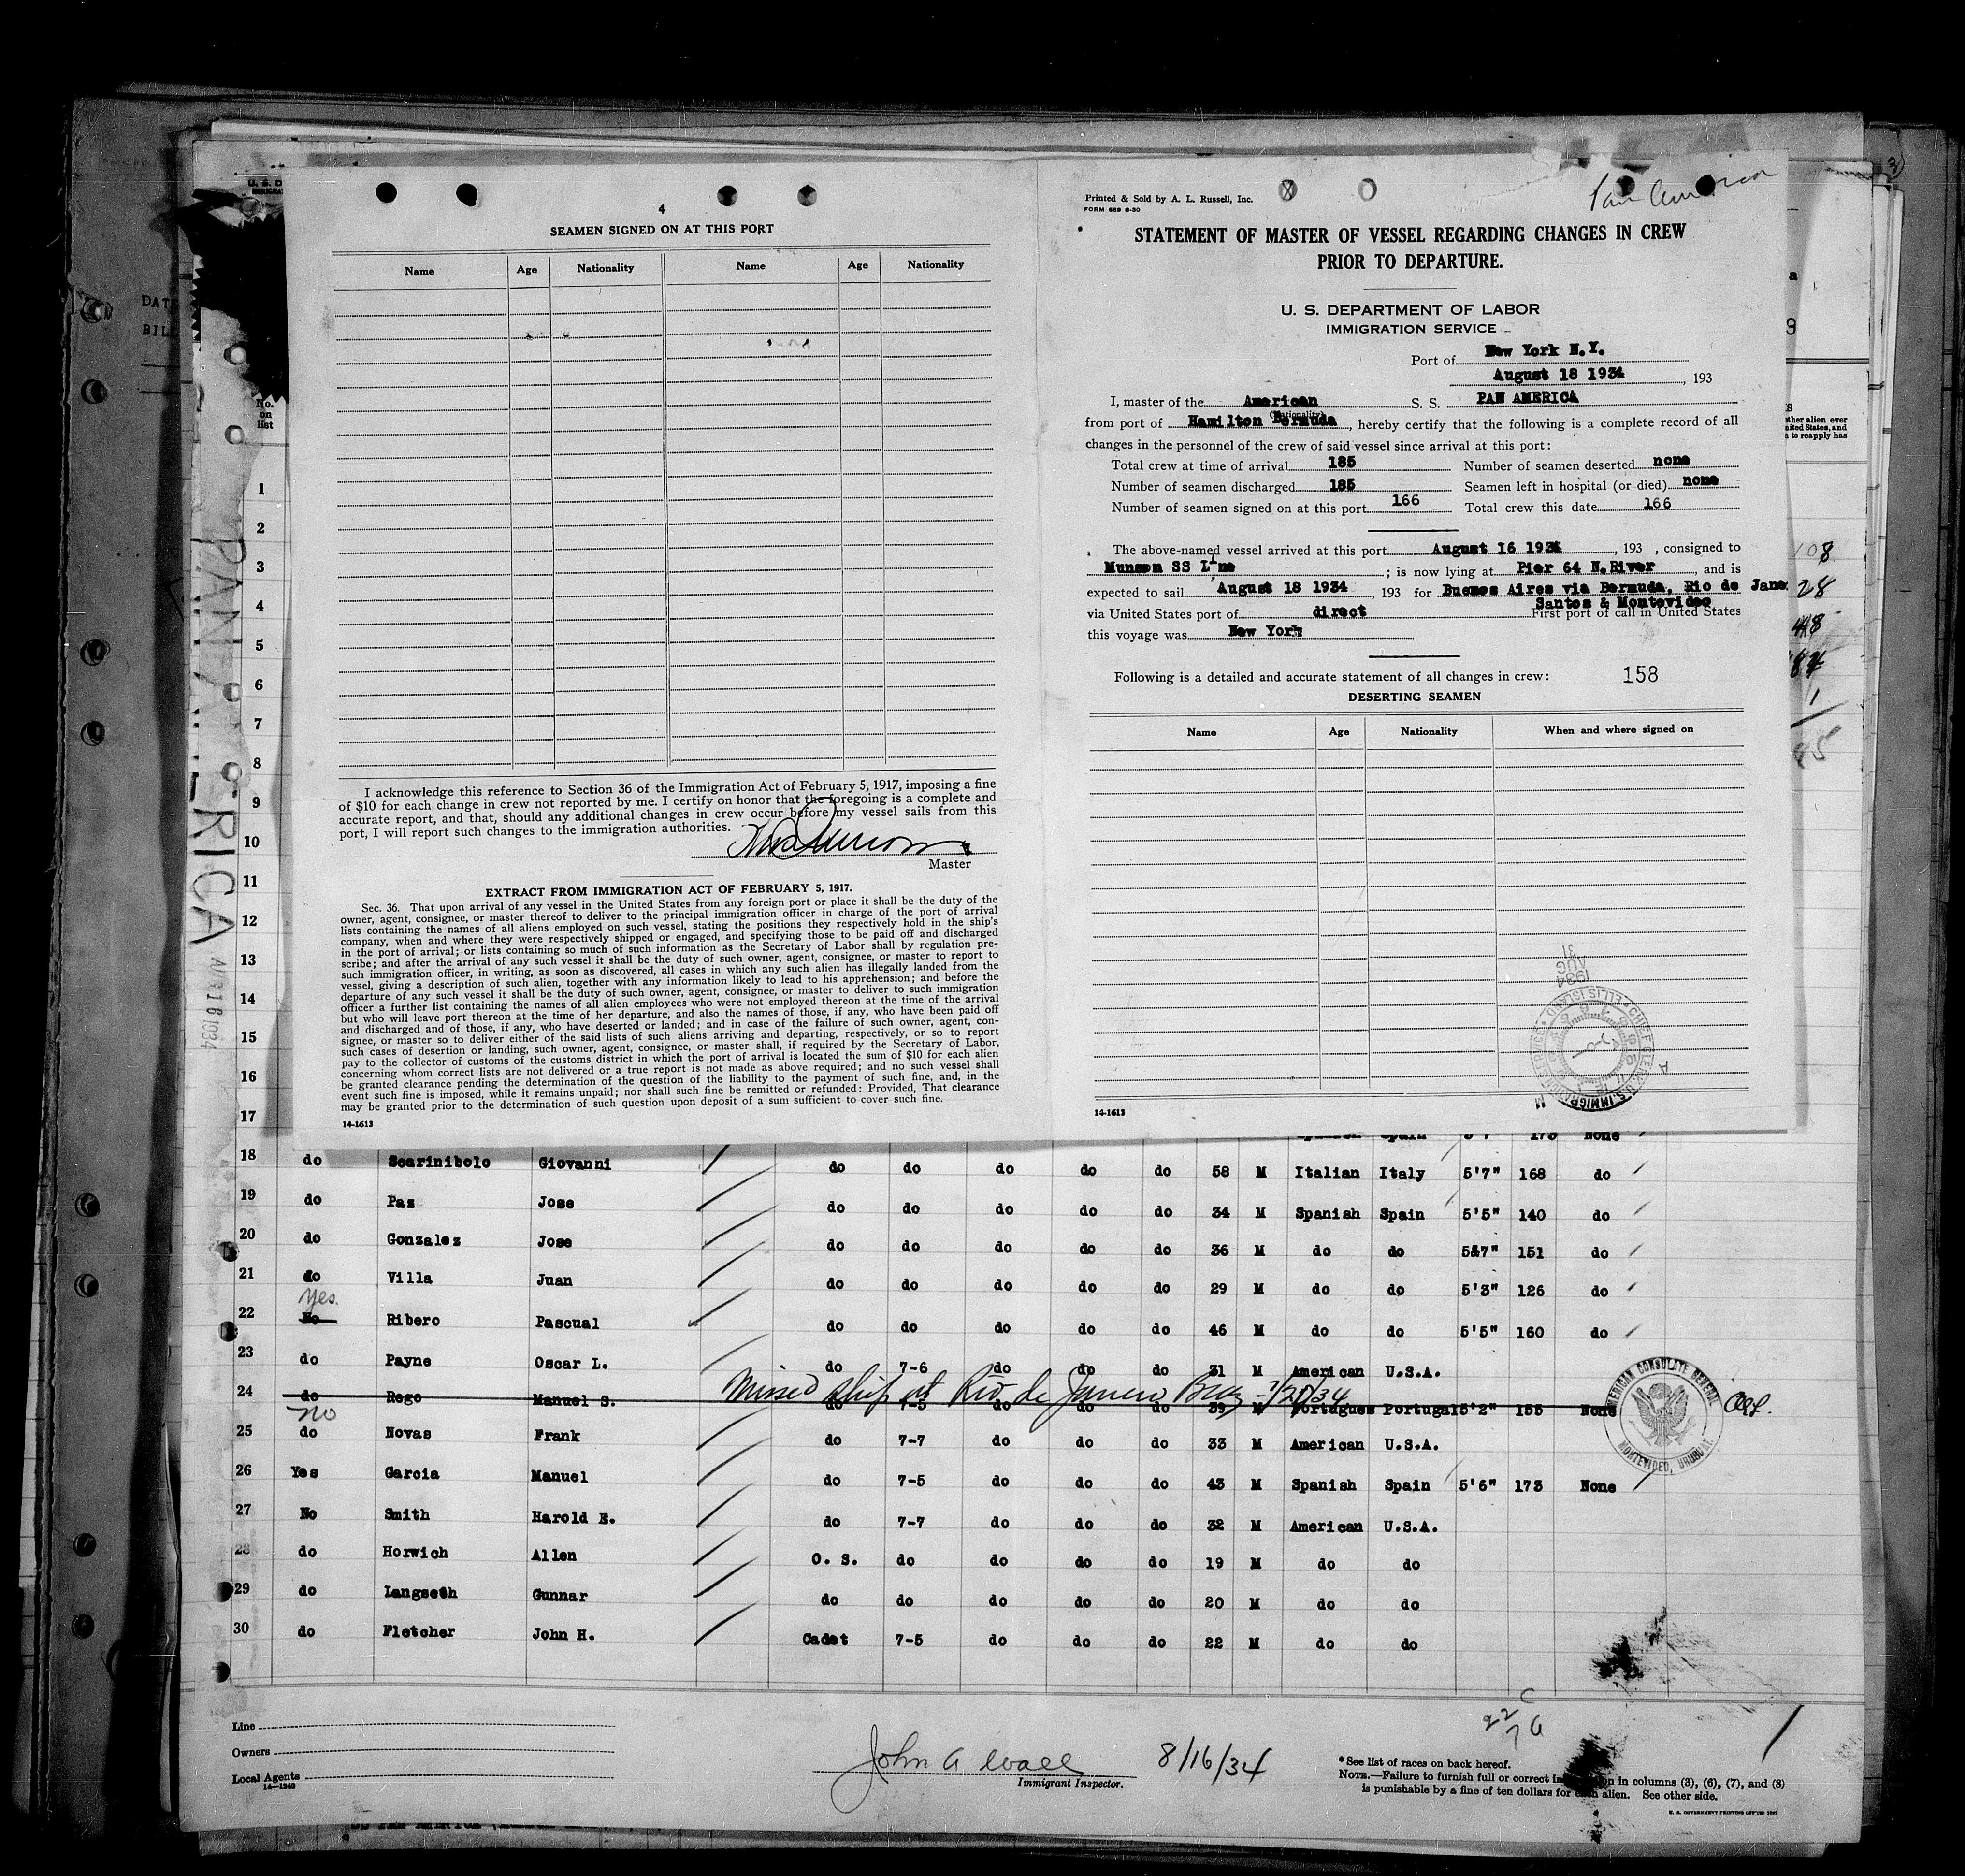 4
SEAMEN SIGNED ON AT THIS PORT
Name Age Nationality Name Age Nationality
I acknowledge this reference to Section 36 of the Immigration Act of February 5, 1917, imposing a fine
of $10 for each change in crew not reported by me. I certify on honor that the foregoing is a complete and
accurate report, and that, should any additional changes in crew occur before my vessel sails from this
port, I will report such changes to the immigration authorities.
Master
EXTRACT FROM IMMIGRATION ACT OF FEBRUARY 5, 1917.
Sec. 36. That upon arrival of any vessel in the United States from any foreign port or place it shall be the duty of the
owner, agent, consignee, or master thereof to deliver to the principal immigration officer in charge of the port of arrival
lists containing the names of all aliens employed on such vessel, stating the positions they respectively hold in the ship's
company, when and where they were respectively shipped or engaged, and specifying those to be paid off and discharged
in the port of arrival; or lists containing so much of such information as the Secretary of Labor shall by regulation pre-
scribe; and after the arrival of any such vessel it shall be the duty of such owner, agent, consignee, or master to report to
such immigration officer, in writing, as soon as discovered, all cases in which any such alien has illegally landed from the
vessel, giving a description of such alien, together with any information likely to lead to his apprehension; and before the
departure of any such vessel it shall be the duty of such owner, agent, consignee, or master to deliver to such immigration
officer a further list containing the names of all alien employees who were not employed thereon at the time of the arrival
but who will leave port thereon at the time of her departure, and also the names of those, if any, who have been paid off
and discharged and of those, if any, who have deserted or landed; and in case of the failure of such owner, agent, con-
signee, or master so to deliver either of the said lists of such aliens arriving and departing, respectively, or so to report
such cases of desertion or landing, such owner, agent, consignee, or master shall, if required by the Secretary of Labor,
pay to the collector of customs of the customs district in which the port of arrival is located the sum of $10 for each alien
concerning whom correct lists are not delivered or a true report is not made as above required; and no such vessel shall
be granted clearance pending the determination of the question of the liability to the payment of such fine, and, in the
event such fine is imposed, while it remains unpaid; nor shall such fine be remitted or refunded: Provided, That clearance
may be granted prior to the determination of such question upon deposit of a sum sufficient to cover such fine.
14-1613
Printed & Sold by A. L. Russell, Inc.
FORM 689 6-30
Pan America
STATEMENT OF MASTER OF VESSEL REGARDING CHANGES IN CREW
PRIOR TO DEPARTURE.
U. S. DEPARTMENT OF LABOR
IMMIGRATION SERVICE
Port of New York N.Y.
August 18 1934, 193
I, master of the American S. S. PAN AMERICA
(Nationality)
from port of Hamilton Bermuda, hereby certify that the following is a complete record of all
changes in the personnel of the crew of said vessel since arrival at this port:
Total crew at time of arrival 185 Number of seamen deserted none
Number of seamen discharged 185 Seamen left in hospital (or died) none
Number of seamen signed on at this port 166 Total crew this date 166
The above-named vessel arrived at this port August 16 1934, 193 , consigned to
Munson SS Line; is now lying at Pier 64 N.River, and is
expected to sail August 18 1934, 193 for Buenos Aires via Bermuda, Rio de Jane
Santos & Montevideo
via United States port of direct First port of call in United States
this voyage was New York
Following is a detailed and accurate statement of all changes in crew: 158
DESERTING SEAMEN
Name Age Nationality When and where signed on
1934
AUG
31
14-1613
DATE
No.
on
list
PAN AMERICA
AUG 16 1934
1
2
3
4
5
6
7
8
9
10
11
12
13
14
15
16
17 None
18 do Scarinibolo Giovanni do do do do do 58 M Italian Italy 5'7" 168 do
19 do Paz Jose do do do do do 34 M Spanish Spain 5'5" 140 do
20 do Gonzalez Jose do do do do do 36 M do do 5&7" 151 do
21 do Villa Juan do do do do do 29 M do do 5'3" 126 do
Yes.
22 No Ribero Pascual do do do do do 46 M do do 5'5" 160 do
23 do Payne Oscar L. do 7-6 do do do 31 M American U.S.A.
Missed ship at Rio de Janeiro Braz
24 do Rego Manuel S. do 7-5 do do do 39 M Portugues Portugal 5'2" 155 None
no
25 do Novas Frank do 7-7 do do do 33 M American U.S.A.
26 Yes Garcia Manuel do 7-5 do do do 43 M Spanish Spain 5'6" 173 None
27 No Smith Harold E. do 7-7 do do do 32 M American U.S.A.
28 do Horwich Allen O. S. do do do do 19 M do do
29 do Langseth Gunnar do do do do do 20 M do do
30 do Fletcher John H. Cadet 7-5 do do do 22 M do do
AMERICAN CONSULATE GENERAL
MONTEVIDEO, URUGUAY
Line
Owners
Local Agents
14-1240
John A Wall 8/16/34
Immigrant Inspector.
*See list of races on back hereof.
NOTE.—Failure to furnish full or correct in columns (3), (6), (7), and (8)
is punishable by a fine of ten dollars for each alien. See other side.